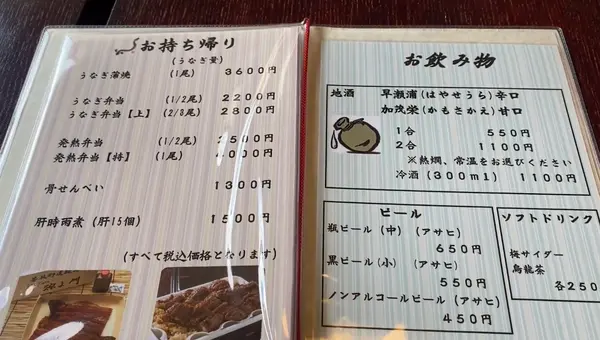 お持ち帰り
(うなぎ量)
うなぎ蒲焼 (1尾) 3600円
うなぎ弁当 (1/2尾) 2200円
うなぎ弁当【上】 (2/3尾) 2800円
発熱弁当 (1/2尾) 2500円
発熱弁当【特】 (1尾) 4000円
骨せんべい 1300円
肝時雨煮 (肝15個) 1500円
(すべて税込価格となります)
お飲み物
地酒 早瀬浦(はやせうら)辛口
加茂栄(かもさかえ)甘口
1合 550円
2合 1100円
※熱燗、常温をお選びください
冷酒(300ml) 1100円
ビール
瓶ビール(中)(アサヒ)
650円
黒ビール(小)(アサヒ)
550円
ノンアルコールビール(アサヒ)
450円
ソフトドリンク
梅サイダー
烏龍茶
各250